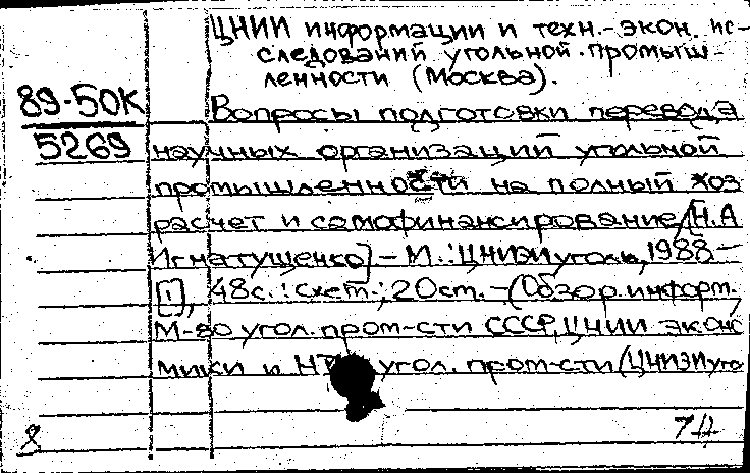 ЦНИИ информации и техн.-экон. ис-
следований угольной промыш-
ленности (Москва).
89-50К Вопросы подготовки перевода
5269 научных организаций угольной
промышленности на полный хоз
расчет и самофинансирование/[Н.А
Игнатущенко] - М.: ЦНИЭИуголь, 1988 -
[1], 48с.: схем.; 20см. - (Обзор. информ.,
М-во угол. пром-сти СССР, ЦНИИ эконо
мики и угол. пром-сти (ЦНИЭИуго
8